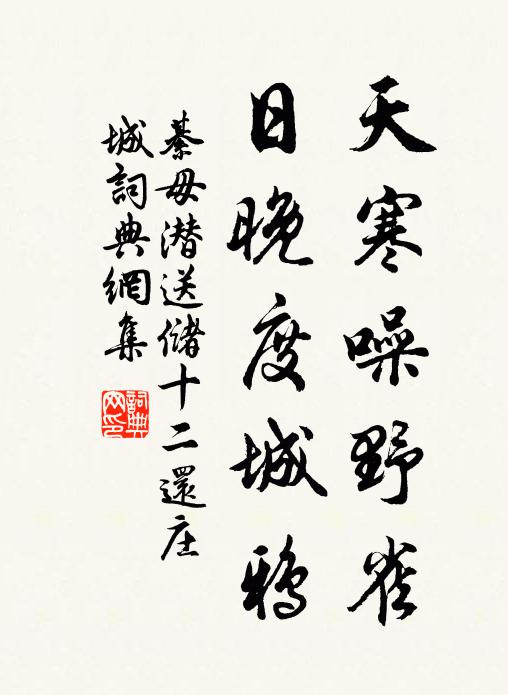 天寒噪野雀
日晚度城鴉
綦毋潜送儲十二還庄
城詞典網集
詞典网印